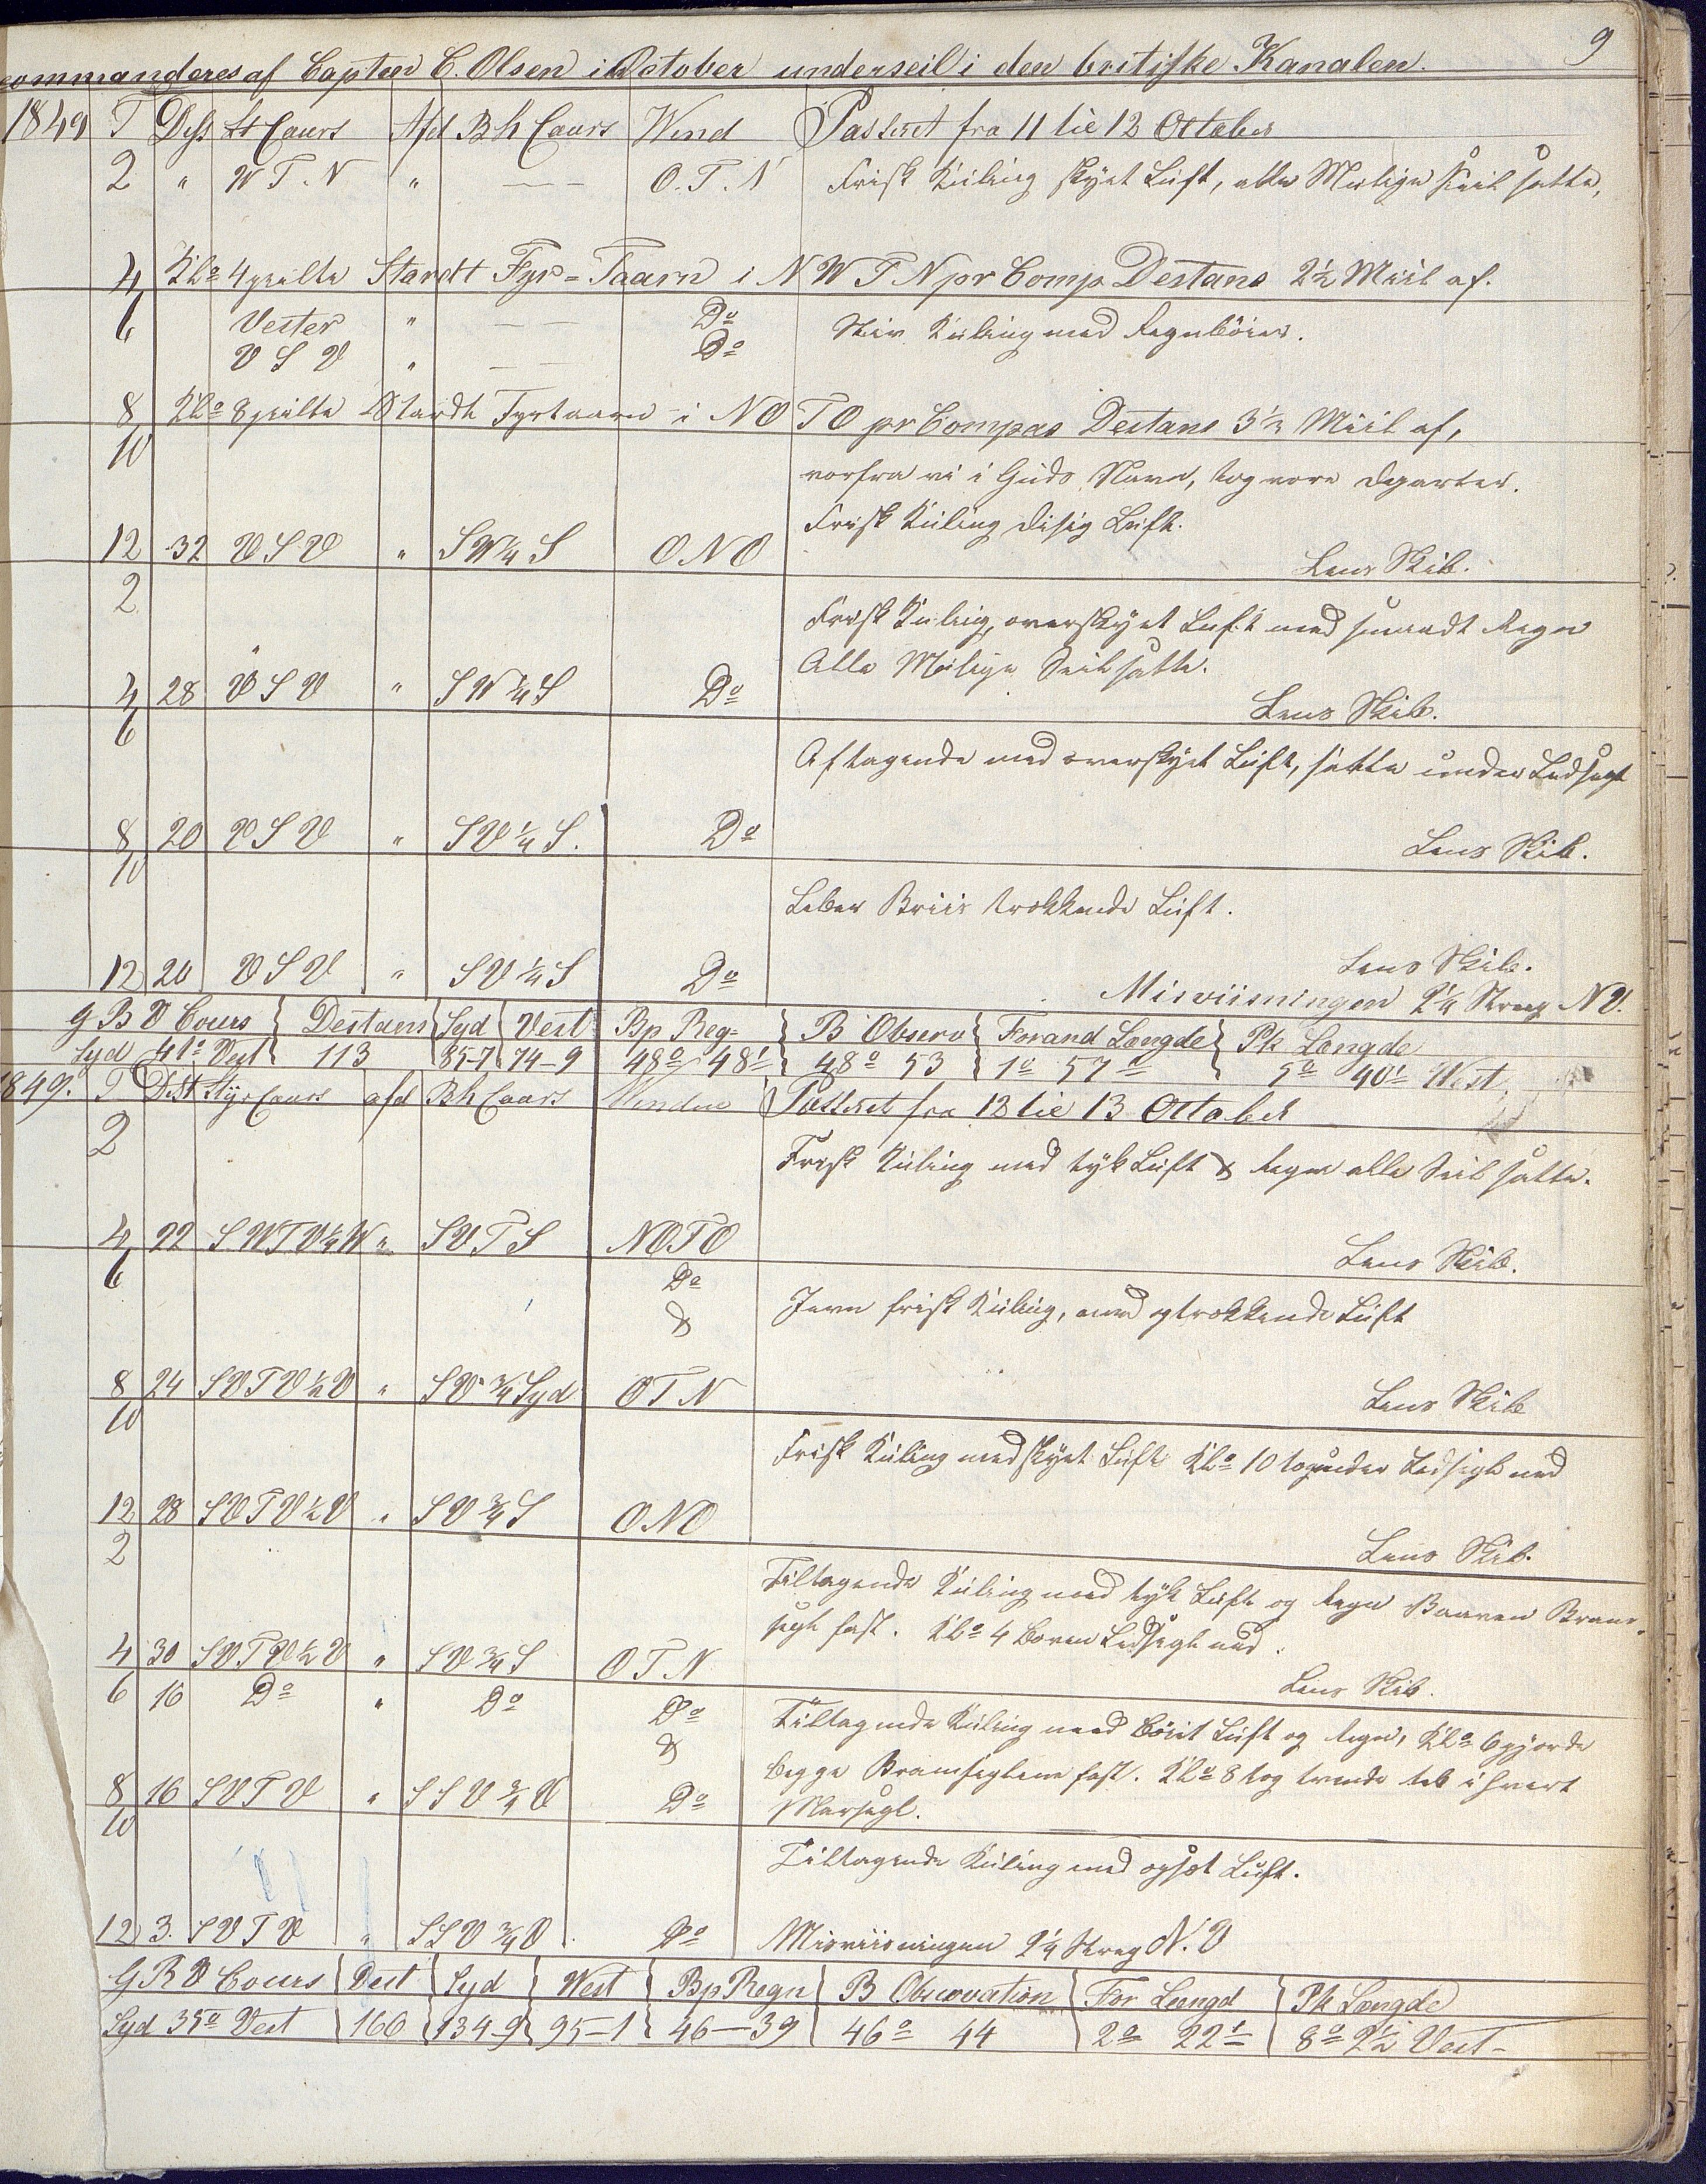 9
commanderes af Capten C. Olsen i October underseil i den britiske Kanalen.
1849 T Dess St Cours Afd Bh Cours Wind Passeret fra 11 til 12 Octaber
2 " W T. N " — — O. T. N Frisk Kuling skyet Luft, alle Mulige Seil satte,
4 Kl⁰ 4 peilte Stardt Fyr=Taarn i N W T N pr Comp Destans 2½ Miil af.
6 Vester " — — D⁰ Stiv Kuling med Regnbÿier.
V S V " — — D⁰
8 Kl⁰ 8 peilte Stardt Fyrtaarn i NO T O pr Compas Destans 3½ Miil af,
10 vorfra vi i Guds Navn, tog vore Departer.
Frisk Kuling disig Luft.
12 32 V S V " SW¼ S O N O
Lens Skib.
2 Frisk Kuling, overskyet Luft med smaadt Regn
Alle Mulige Seil satte.
4 28 V S V " S W ¼ S D⁰
Lens Skib.
6 Aftagende med overskyet Luft, satte under Ledsegl
8 20 V S V " S V ¼ S. D⁰
Lens Skib.
10 Laber Briis trækkende Luft.
12 20 V S V " S V ¼ S D⁰
Lens Skib.
Misviisningen 2¼ Streeg N V.
G B V Cours Destans Syd Vest Bp Reg= B Observ Forand Længde Pk Længde
Syd 41° Vest 113 85-7 74-9 48° 48' 48° 53 1° 57' 5° 40' West
1849. T Dst Styr Cours afd Bh Cours Winden Passeret fra 12 til 13 Octaber
2 Frisk Kuling med tyk Luft & Regn alle Seil satte.
4 22 S W T V ¼ W " S V T S N O T O
Lens Skib.
6 D⁰ Jevn frisk Kuling, med optrækkende Luft
&
8 24 S V T V ½ V " S V ¾ Syd O T N
Lens Skib
10 Frisk Kuling med skyet Luft Kl⁰ 10 tog under Ledsegl ned
12 28 S V T V ½ V " S V ¾ S O N O
Lens Skib.
2 Tiltagende Kuling med tyk Luft og Regn Bramsegl fast. Kl⁰ 4 Ledsegl ned.
4 30 S V T V ½ V " S V ¾ S O T N
Lens Skib.
6 16 D⁰ " D⁰ D⁰ Tiltagende Kuling med Luft og Regn, Kl⁰ 6 gjorde
& begge Bramseglene fast. Kl⁰ 8 tog tvende Reb i hvert
8 16 S V T V " S S V ¾ V D⁰ Mersegl.
10 Tiltagende Kuling med Luft.
12 3. S V T V " S S V ¾ V D⁰ Misviisningen 2¼ Streg N. V
G R V Cours Dest Syd West Bp Regn B Observation For Længd Pk Længde
Syd 35° Vest 166 134-9 95-1 46-39 46° 44 2° 22' 8° 2½ Vest-